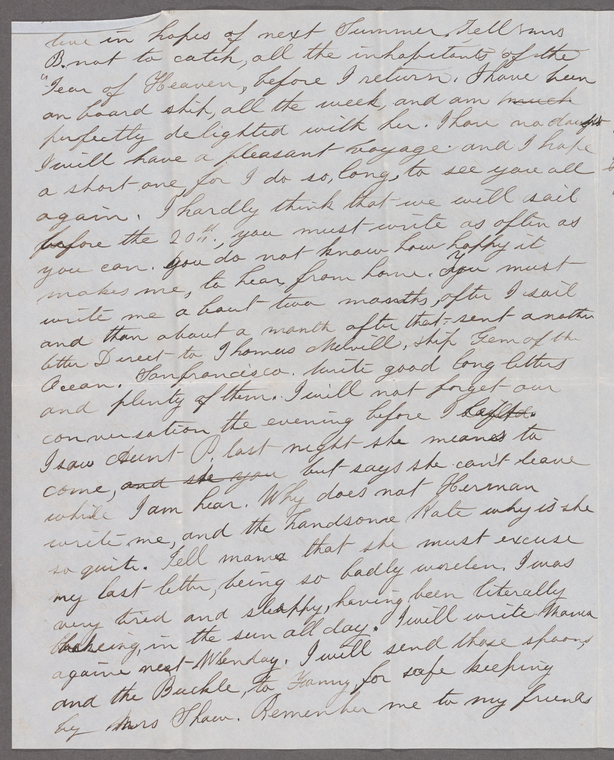 live in hopes of next Summer. Tell Mrs
B. not to catch, all the inhabitants of the
"Tear of Heaven, before I return. I have been
on board ship, all the week, and am much
perfectly delighted with her. I have no doubt
I will have a pleasant voyage. and I hope
a short one, for I do so, long, to see you all
again. I hardly think that we will sail
before the 20th., you must write as often as
you can. you do not know how happy it
makes me, to hear, from home. You must
write me about two months, after I sail
and than about a month after that, sent another
letter Direct to Thomas Melvill, Ship Gem of the
Ocean. Sanfrancisco. Write good long letters
and plenty of them. I will not forget our
conversation the evening before I
I saw Aunt P. last night she means to
come, and she you but says she can't leave
while I am hear. Why does not Herman
write me, and the handsome Kate why is she
so quite. Tell mama that she must excuse
my last letter, being so badly worelen, I was
very tired and sleappy, having been literally
in the sun all day. I will write Mama
againe next Wenday. I will send those spoons
and the Buckle, to Fanny, for safe keeping
by Mrs Shaw. Remember me to my friends